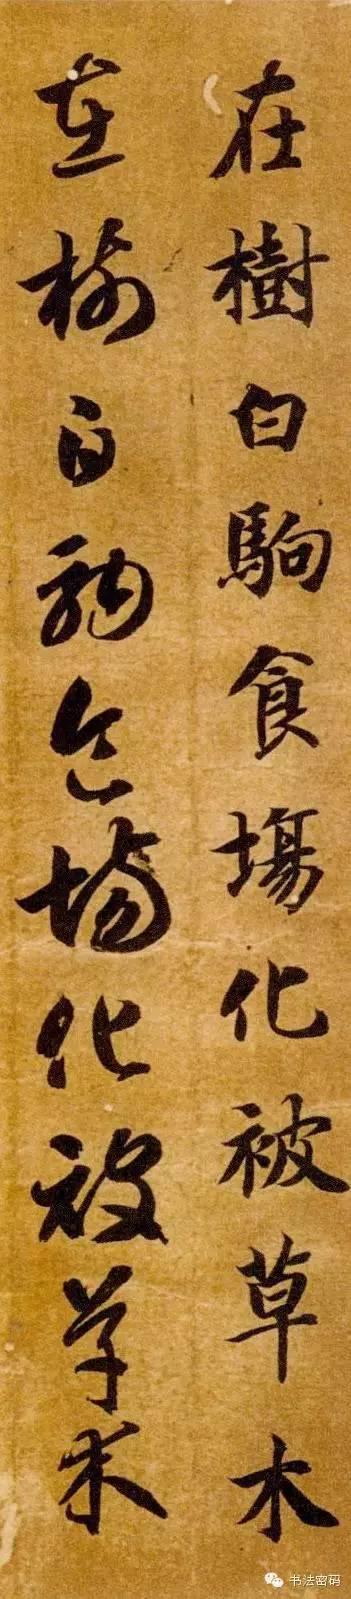 在樹白駒食場化被草木
在樹白駒食場化被草木
书法密码